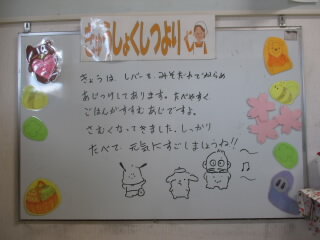 きゅうしょくしつより
きょうは、レバーを、みそだれでからめ
あじつけしてあります。たべやすく
ごはんがすすむあじですよ。
さむくなってきました。しっかり
たべて、元気にすごしましょうね!!